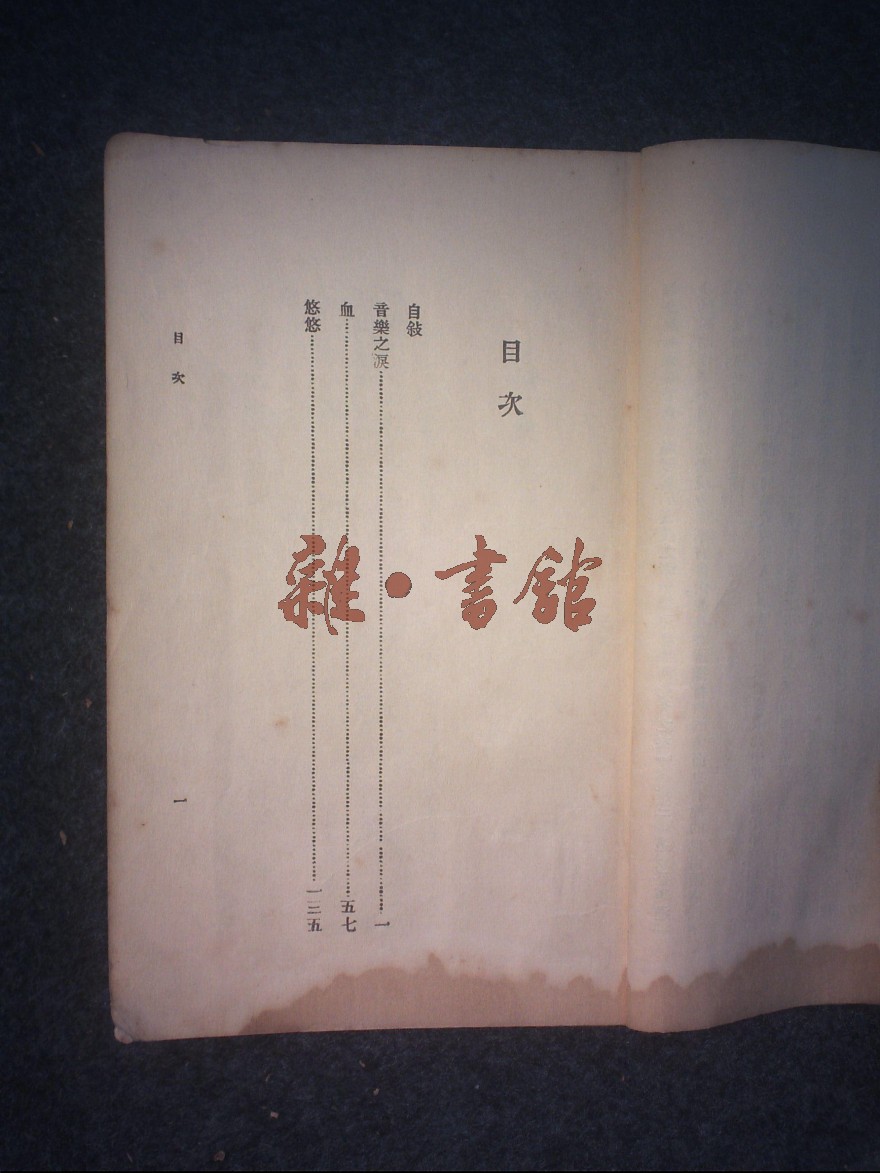 目次
自敍
音樂之淚……一
血……五七
悠悠……一三五
目次
一
雜·書舘